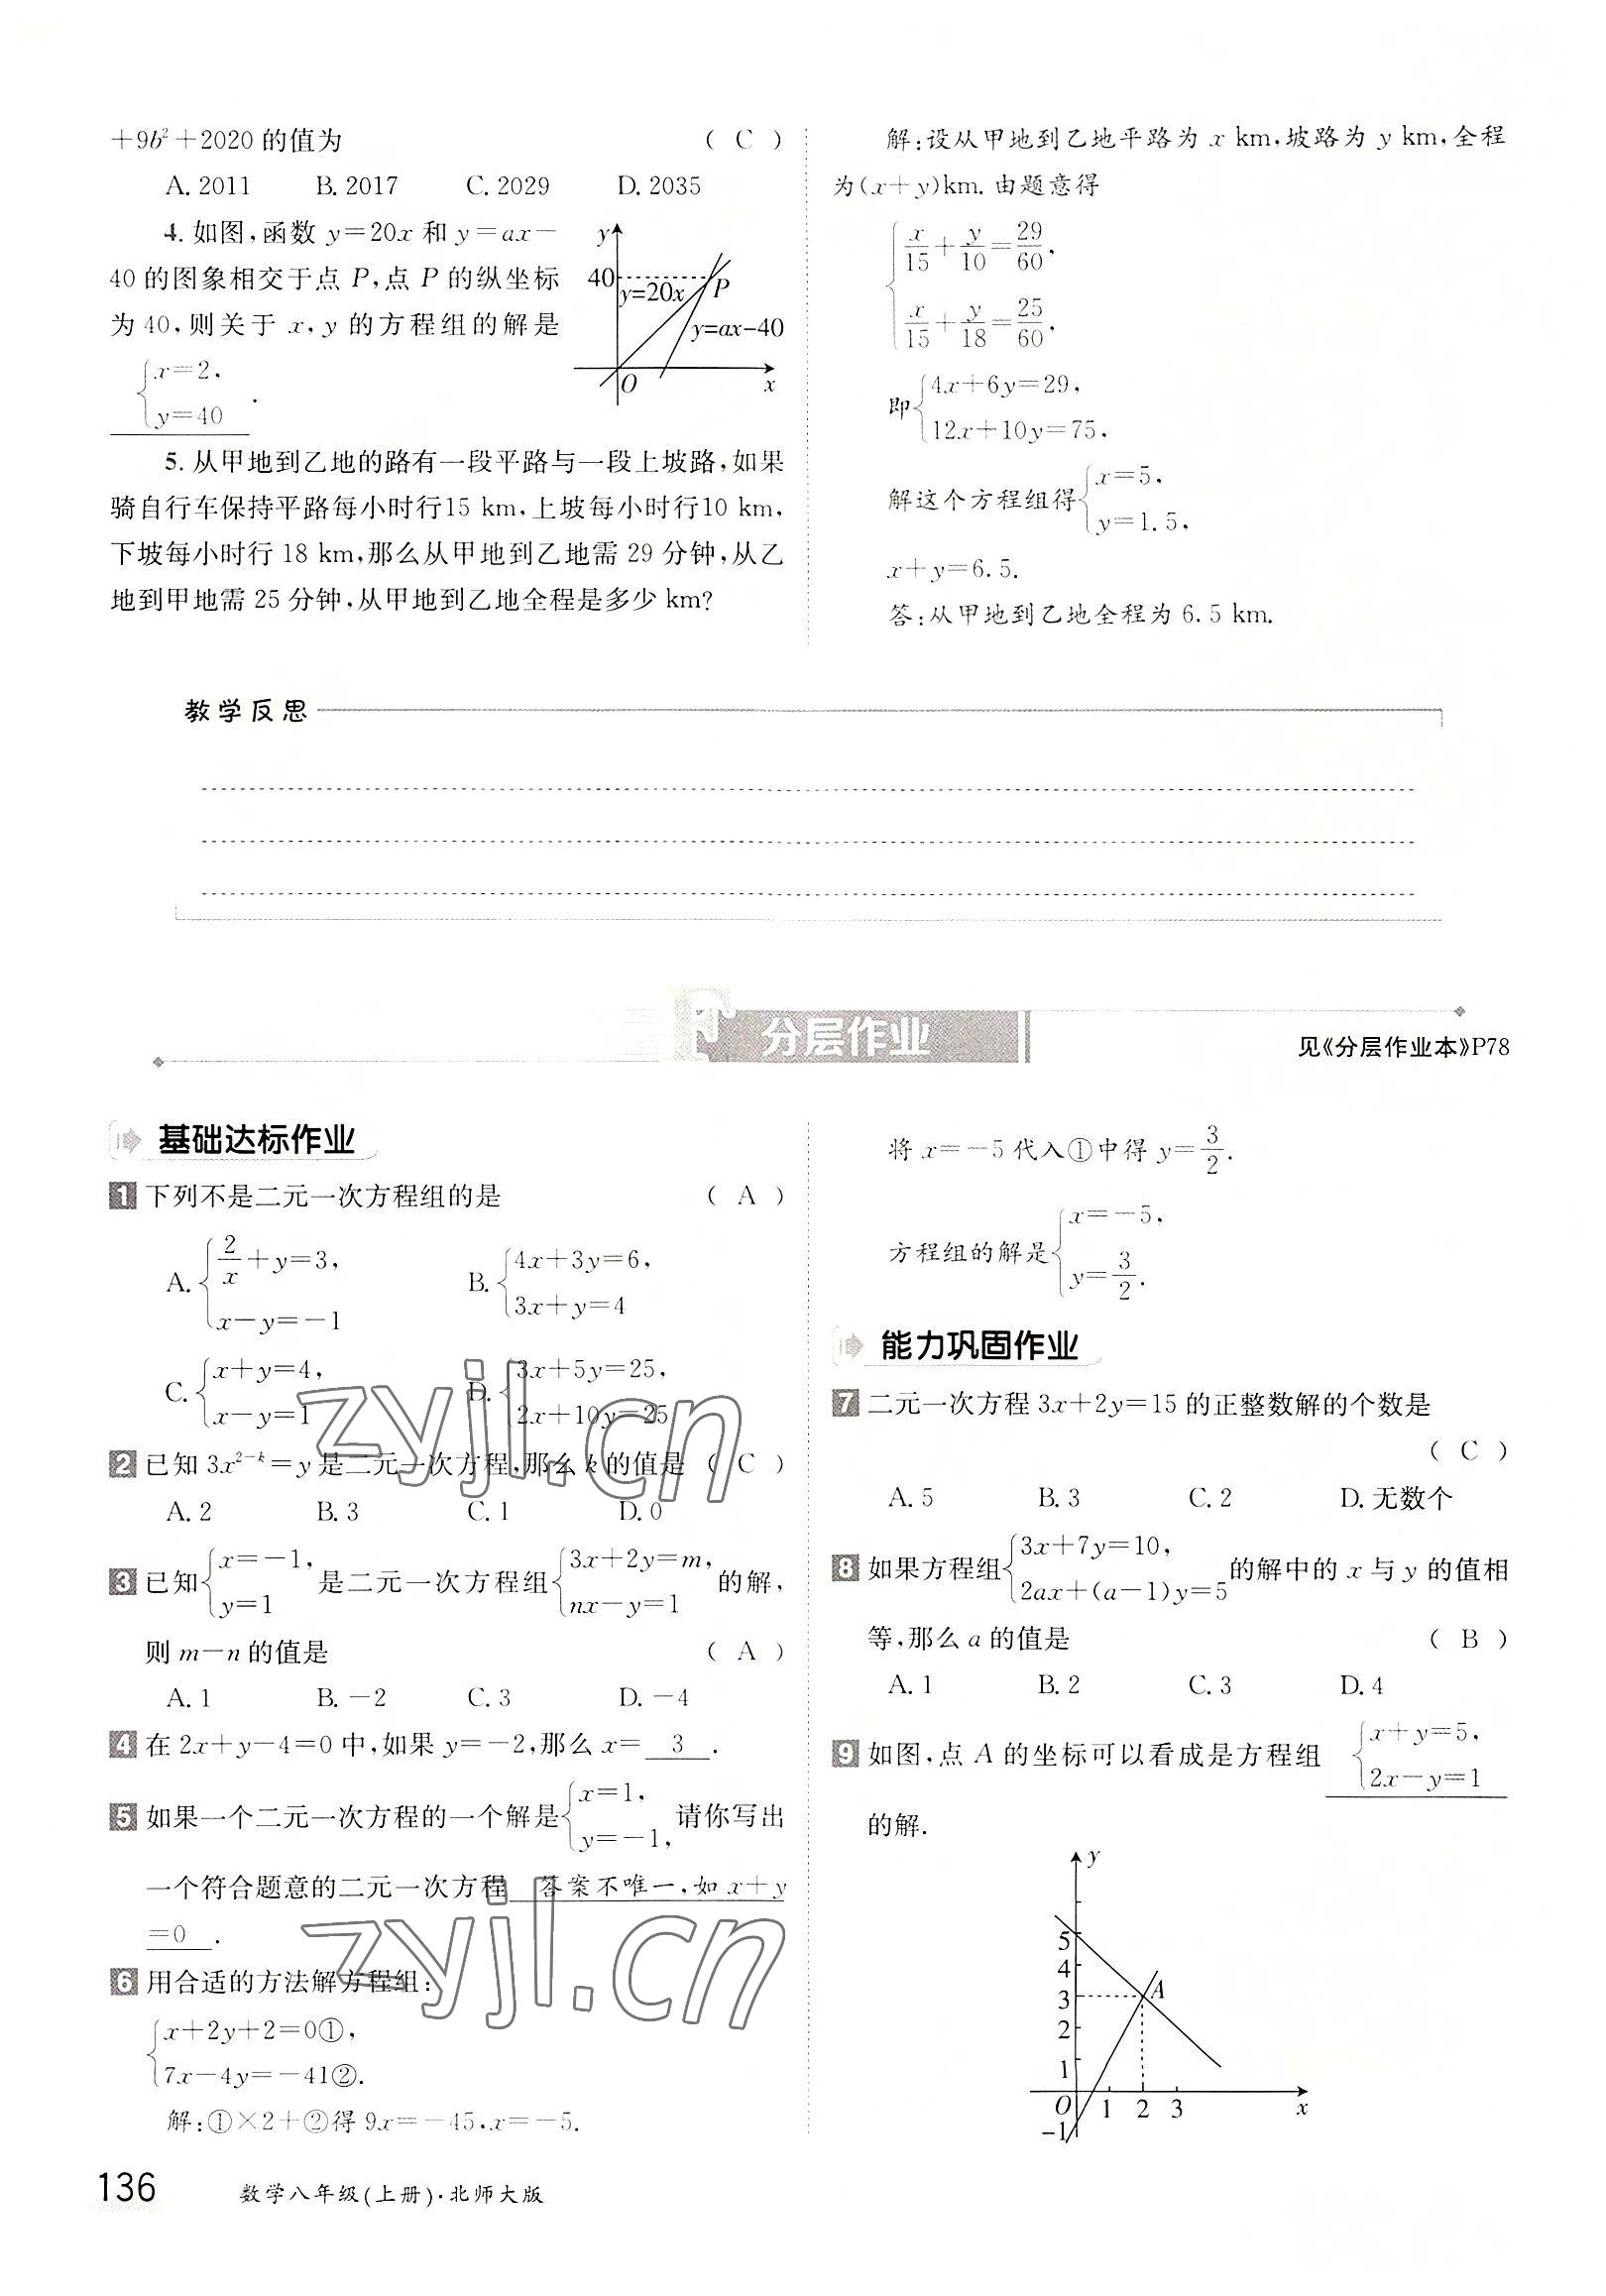 +9b²+2020 的值为 ( C )
A. 2011 B. 2017 C. 2029 D. 2035
4. 如图,函数 y=20x 和 y=ax-
40 的图象相交于点 P,点 P 的纵坐标
为 40,则关于 x,y 的方程组的解是
{x=2,
y=40 .
y
40
y=20x
P
y=ax-40
O
x
5. 从甲地到乙地的路有一段平路与一段上坡路,如果
骑自行车保持平路每小时行15 km,上坡每小时行10 km,
下坡每小时行 18 km,那么从甲地到乙地需 29 分钟,从乙
地到甲地需 25 分钟,从甲地到乙地全程是多少 km?
解:设从甲地到乙地平路为 x km,坡路为 y km,全程
为(x+y)km. 由题意得
{x/15+y/10=29/60,
x/15+y/18=25/60.
即{4x+6y=29,
12x+10y=75.
解这个方程组得{x=5,
y=1.5,
x+y=6.5.
答:从甲地到乙地全程为 6.5 km.
教学反思
分层作业
见《分层作业本》P78
基础达标作业
1 下列不是二元一次方程组的是 ( A )
A. {2/x+y=3,
x-y=-1
B. {4x+3y=6,
3x+y=4
C. {x+y=4,
x-y=1
D. {3x+5y=25,
2x+10y=25
2 已知 3x²⁻ᵏ=y 是二元一次方程,那么 k 的值是 ( C )
A. 2 B. 3 C. 1 D. 0
3 已知{x=-1,
y=1 是二元一次方程组{3x+2y=m,
nx-y=1 的解,
则 m-n 的值是 ( A )
A. 1 B. -2 C. 3 D. -4
4 在 2x+y-4=0 中,如果 y=-2,那么 x= 3 .
5 如果一个二元一次方程的一个解是{x=1,
y=-1, 请你写出
一个符合题意的二元一次方程 答案不唯一,如 x+y
=0 .
6 用合适的方法解方程组:
{x+2y+2=0①,
7x-4y=-41②.
解:①×2+②得 9x=-45,x=-5.
将 x=-5 代入①中得 y=3/2.
方程组的解是{x=-5,
y=3/2.
能力巩固作业
7 二元一次方程 3x+2y=15 的正整数解的个数是
( C )
A. 5 B. 3 C. 2 D. 无数个
8 如果方程组{3x+7y=10,
2ax+(a-1)y=5 的解中的 x 与 y 的值相
等,那么 a 的值是 ( B )
A. 1 B. 2 C. 3 D. 4
9 如图,点 A 的坐标可以看成是方程组 {x+y=5,
2x-y=1
的解.
y
5
4
3
2
1
A
O 1 2 3 x
-1
zyjl.cn
zyjl.cn
136 数学八年级(上册)·北师大版